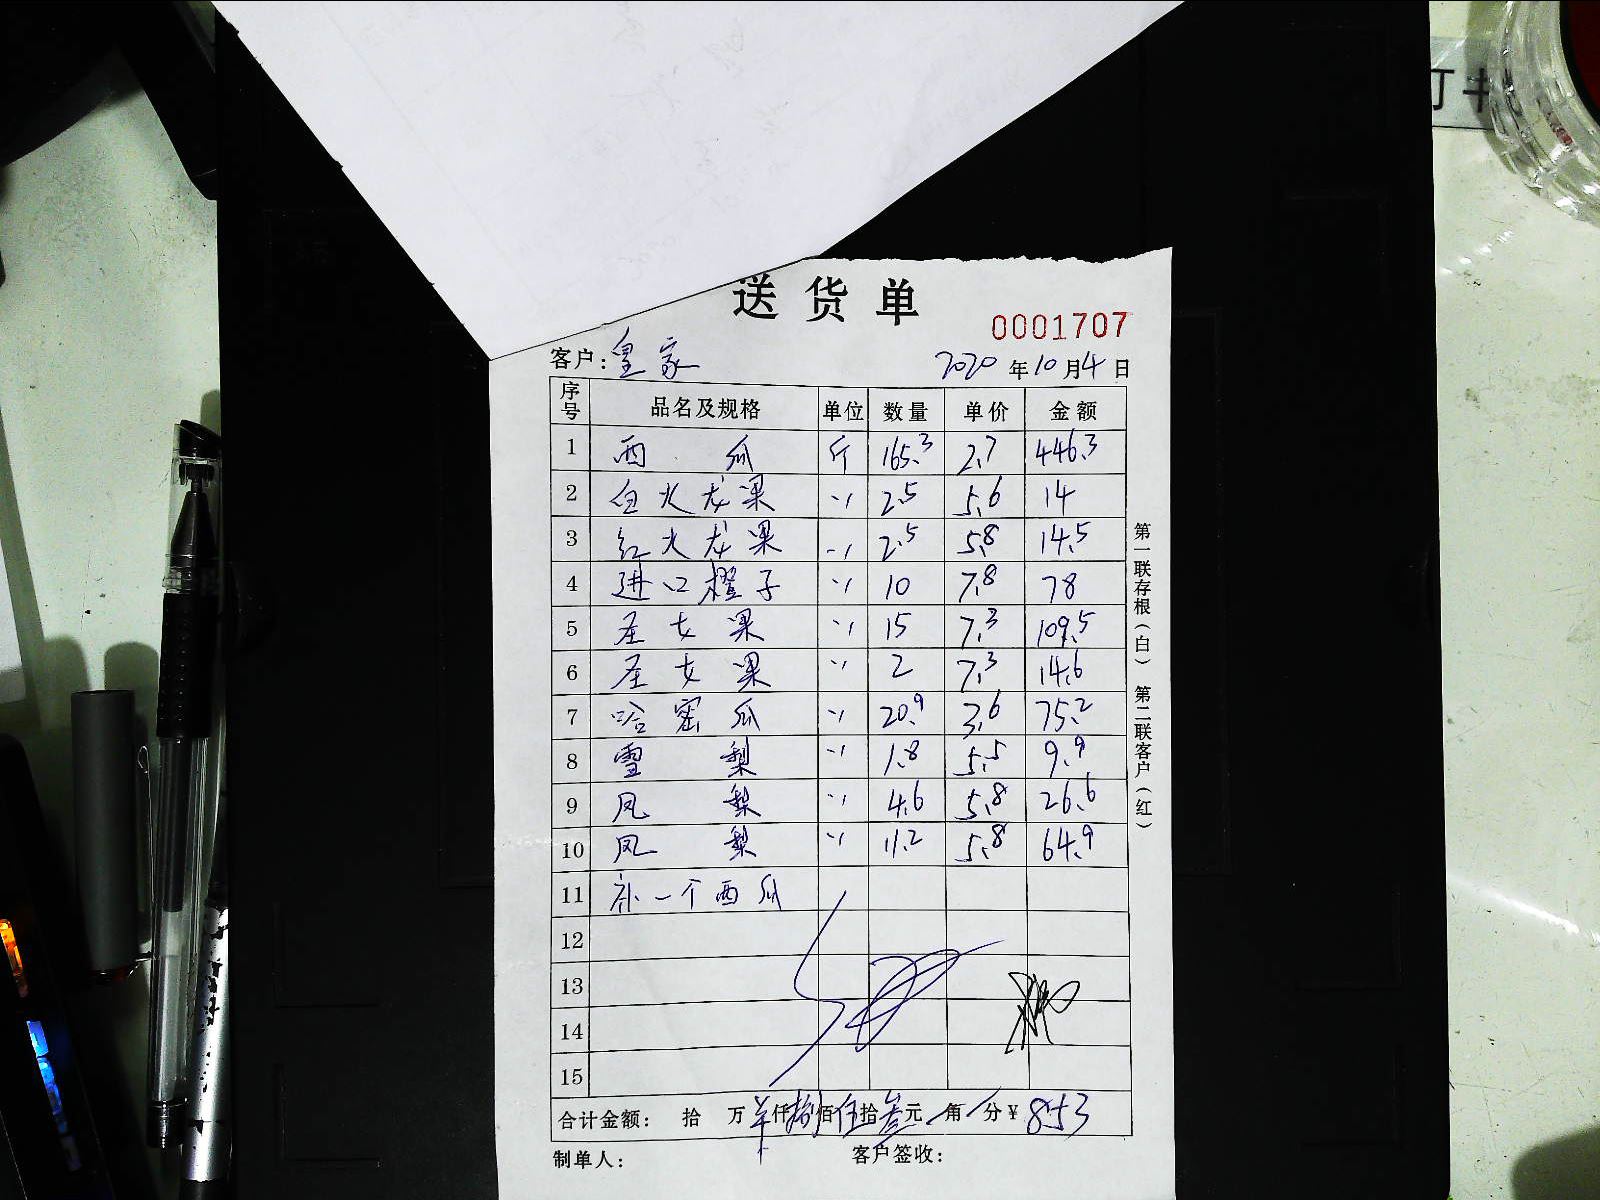 送货单
0001707
客户：皇家 2020年10月4日
序号 品名及规格 单位 数量 单价 金额
1 西瓜 斤 165.3 2.7 446.3
2 白火龙果 〃 2.5 5.6 14
3 红火龙果 〃 2.5 5.8 14.5
4 进口橙子 〃 10 7.8 78
5 圣女果 〃 15 7.3 109.5
6 圣女果 〃 2 7.3 14.6
7 哈密瓜 〃 20.9 3.6 75.2
8 雪梨 〃 1.8 5.5 9.9
9 凤梨 〃 4.6 5.8 26.6
10 凤梨 〃 11.2 5.8 64.9
11 补一个西瓜
12
13
14
15
合计金额： 拾 万 仟捌佰伍拾叁元 角 分￥853
制单人： 客户签收：
第一联存根（白） 第二联客户（红）